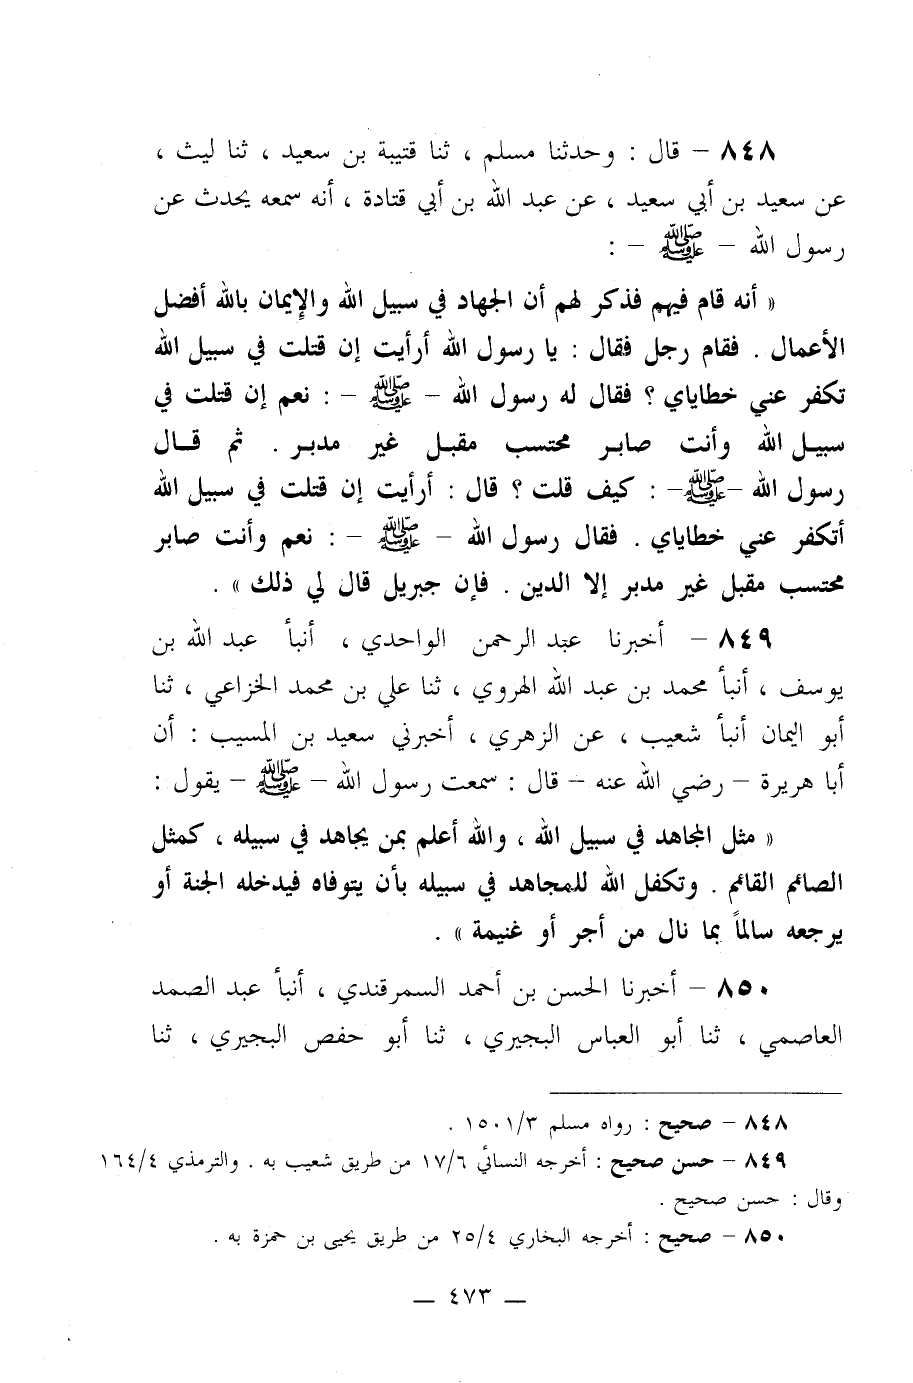 ٨٤٨ – قال : وحدثنا مسلم ، ثنا قتيبة بن سعيد ، ثنا ليث ،
عن سعيد بن أبي سعيد ، عن عبد الله بن أبي قتادة ، أنه سمعه يحدث عن
رسول الله – ﷺ – :
« أنه قام فيهم فذكر لهم أن الجهاد في سبيل الله والإيمان بالله أفضل
الأعمال . فقام رجل فقال : يا رسول الله أرأيت إن قتلت في سبيل الله
تكفر عني خطاياي ؟ فقال له رسول الله – ﷺ – : نعم إن قتلت في
سبيل الله وأنت صابر محتسب مقبل غير مدبر . ثم قال
رسول الله –ﷺ– : كيف قلت ؟ قال : أرأيت إن قتلت في سبيل الله
أتكفر عني خطاياي . فقال رسول الله – ﷺ – : نعم وأنت صابر
محتسب مقبل غير مدبر إلا الدين . فإن جبريل قال لي ذلك » .
٨٤٩ – أخبرنا عبد الرحمن الواحدي ، أنبأ عبد الله بن
يوسف ، أنبأ محمد بن عبد الله الهروي ، ثنا علي بن محمد الخزاعي ، ثنا
أبو اليمان أنبأ شعيب ، عن الزهري ، أخبرني سعيد بن المسيب : أن
أبا هريرة – رضي الله عنه – قال : سمعت رسول الله – ﷺ – يقول :
« مثل المجاهد في سبيل الله ، والله أعلم بمن يجاهد في سبيله ، كمثل
الصائم القائم . وتكفل الله للمجاهد في سبيله بأن يتوفاه فيدخله الجنة أو
يرجعه سالماً بما نال من أجر أو غنيمة » .
٨٥٠ – أخبرنا الحسن بن أحمد السمرقندي ، أنبأ عبد الصمد
العاصمي ، ثنا أبو العباس البجيري ، ثنا أبو حفص البجيري ، ثنا
٨٤٨ – صحيح : رواه مسلم ١٥٠١/٣ .
٨٤٩ – حسن صحيح : أخرجه النسائي ١٧/٦ من طريق شعيب به . والترمذي ١٦٤/٤
وقال : حسن صحيح .
٨٥٠ – صحيح : أخرجه البخاري ٢٥/٤ من طريق يحيى بن حمزة به .
— ٤٧٣ —